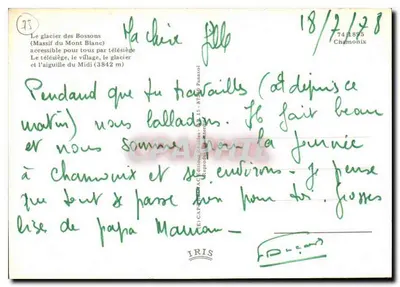 38
Ma chère fille
18/7/78
Le glacier des Bossons
(Massif du Mont Blanc)
accessible pour tous par télésiège
Le télésiège, le village, le glacier
et l'aiguille du Midi (3842 m)
Chamonix
Pendand que tu travailles (et depuis ce
matin) nous balladons. Il fait beau
et nous sommes pour la journée
à chamonix et ses environs. je pense
que tout se passe bien pour toi. Grosses
bise de papa Maman
IRIS